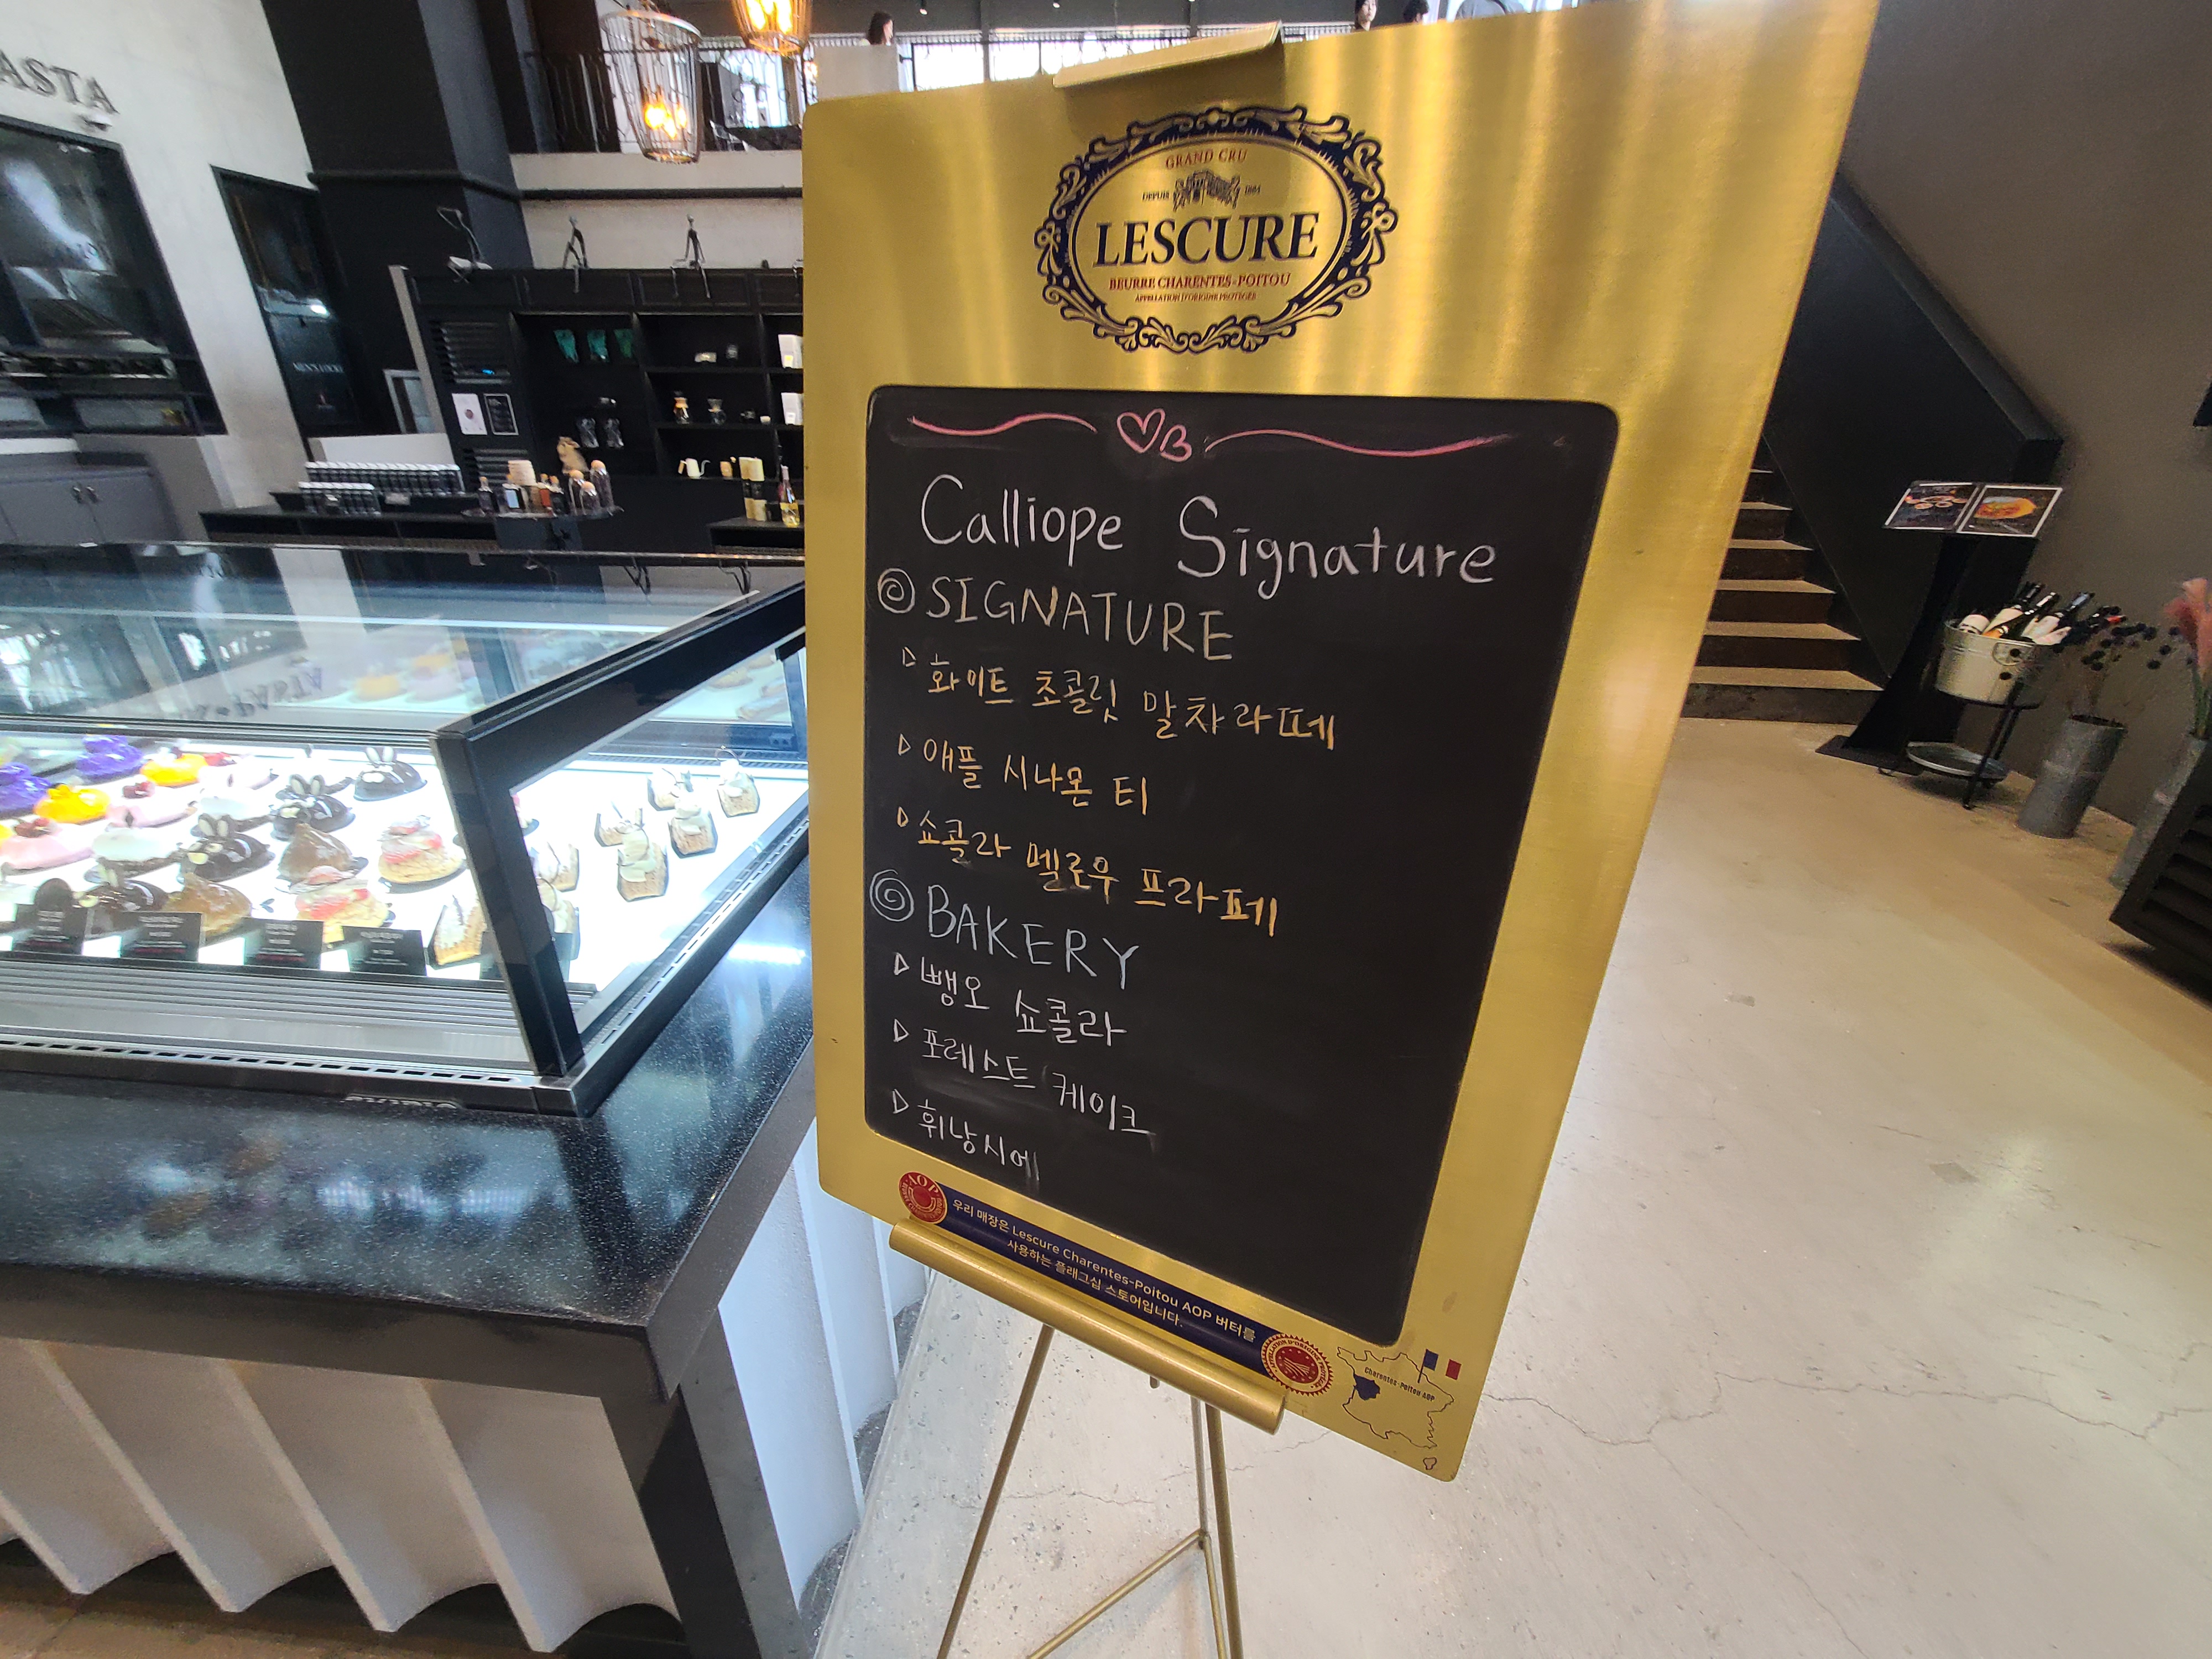 ASTA
GRAND CRU
DEPUIS 1884
LESCURE
BEURRE CHARENTES-POITOU
APPELLATION D'ORIGINE PROTÉGÉE
Calliope Signature
SIGNATURE
▷ 화이트 초콜릿 말차라떼
▷ 애플 시나몬 티
▷ 쇼콜라 멜로우 프라페
BAKERY
▷ 뺑오 쇼콜라
▷ 포레스트 케이크
▷ 휘낭시에
AOP
우리 매장은 Lescure Charentes-Poitou AOP 버터를
사용하는 플래그십 스토어입니다.
Charentes-Poitou AOP